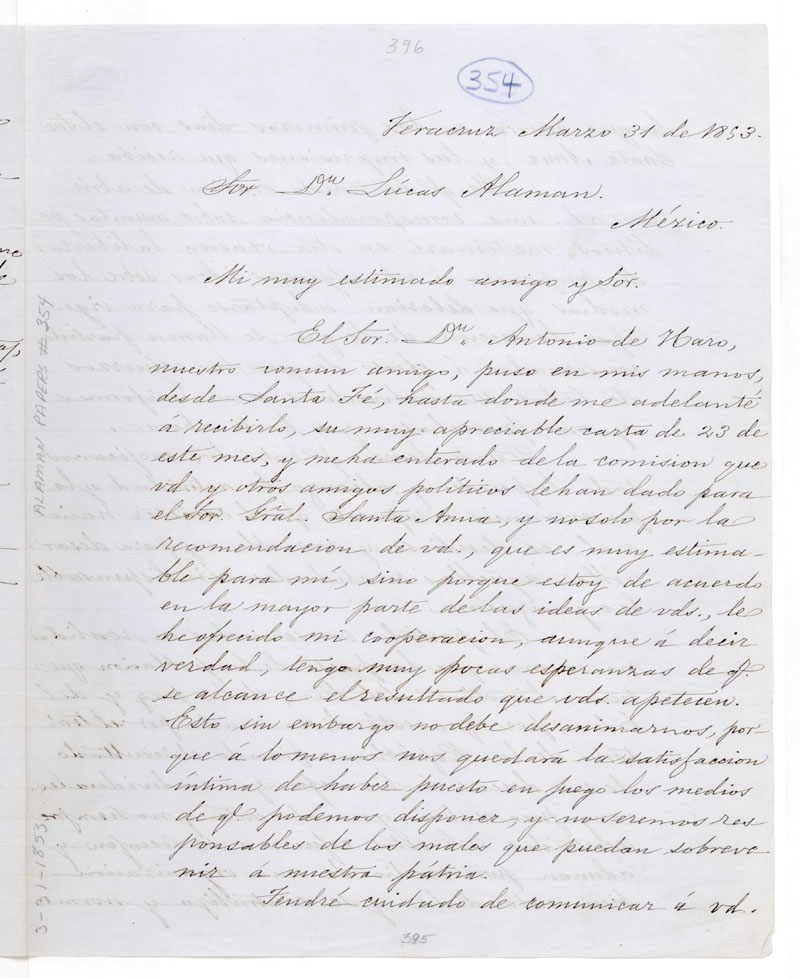 396
354
Veracruz Marzo 31 de 1853.
Sor. Dn. Lúcas Alaman.
México.
Mi muy estimado amigo y Sor.
El Sor. Dn. Antonio de Haro,
nuestro comun amigo, puso en mis manos,
desde Santa Fé, hasta donde me adelanté
á recibirlo, su muy apreciable carta de 23 de
este mes, y me ha enterado de la comision que
vd. y otros amigos políticos le han dado para
el Sor. Gral. Santa Anna, y no solo por la
recomendacion de vd., que es muy estima-
ble para mí, sino porque estoy de acuerdo
en la mayor parte de las ideas de vds., le
he ofrecido mi cooperacion, aunque á decir
verdad, tengo muy pocas esperanzas de q.
se alcance el resultado que vds. apetecen.
Esto sin embargo no debe desanimarnos, por-
que á lo menos nos quedará la satisfaccion
íntima de haber puesto en juego los medios
de q. podemos disponer, y no seremos res
ponsables de los males que puedan sobreve
nir á nuestra pátria.
Tendré cuidado de comunicar á vd.
395
ALAMAN PAPERS # 354
3-31-1853